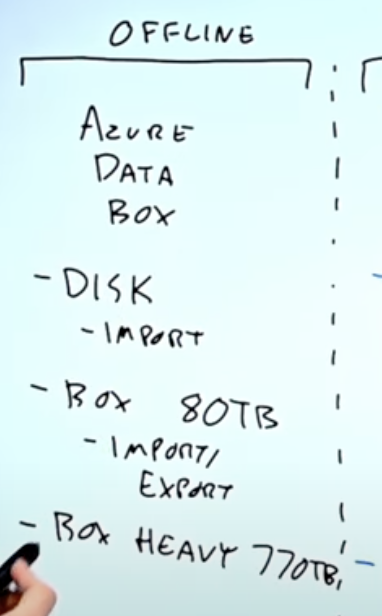 OFFLINE
AZURE
DATA
BOX
- DISK
- IMPORT
- BOX 80TB
- IMPORT/
EXPORT
- BOX HEAVY 770TB,